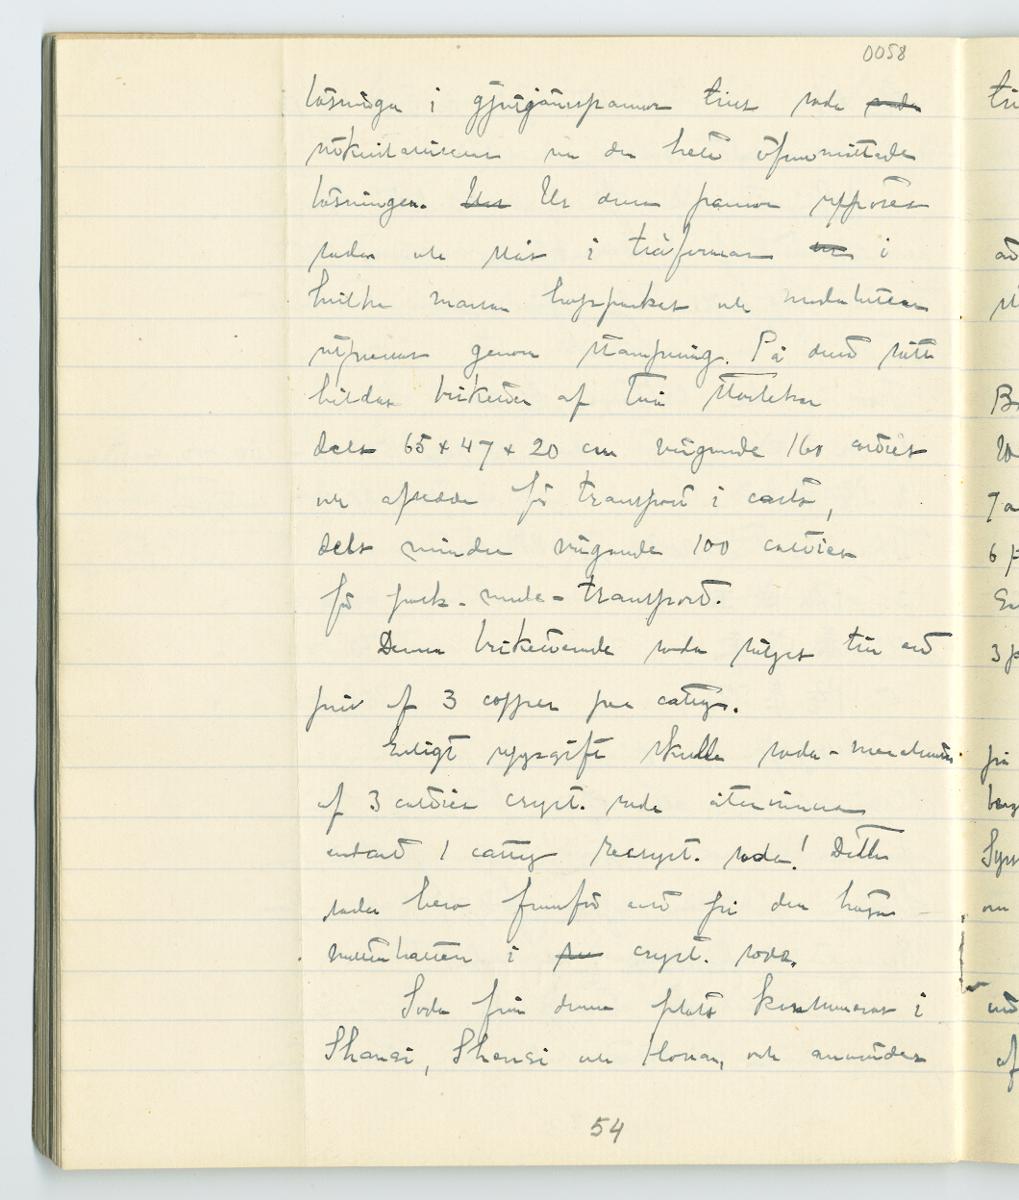 0058
lösningen i gjutjärnspannor tills soda
utkristalliserar ur den heta öfvermättade
lösningen. Ur dessa pannor upphöses
sodan och slås i träformar i
hvilka massan hoppackas och moderluten
utpressas genom stampning. På detta sätt
bildas briketter af två storlekar
dels 65 x 47 x 20 cm vägande 160 catties
och afsedda för transport i carts,
dels mindre vägande 100 catties
för pack-mule-transport.
Denna briketterade soda säljes till ett
pris af 3 copper per catty.
Enligt uppgift skulle soda-
af 3 catties cryst. soda återvinna
endast 1 catty recryst. soda! Detta
beror framför allt på den höga
vattenhalten i cryst. soda.
Soda från denna plats konsumeras i
Shansi, Shensi och Honan, och användes
54